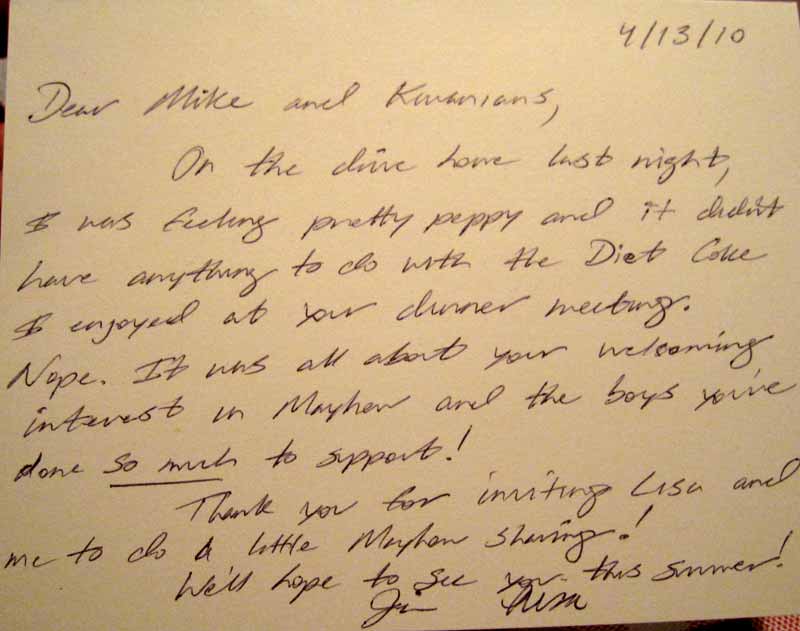 4/13/10
Dear Mike and Kiwanians,
On the drive home last night,
I was feeling pretty peppy and it didn't
have anything to do with the Diet Coke
I enjoyed at your dinner meeting.
Nope. It was all about your welcoming
interest in Mayhew and the boys you've
done so much to support!
Thank you for inviting Lisa and
me to do a little Mayhew sharing!
We'll hope to see you this summer!
Jim Lisa